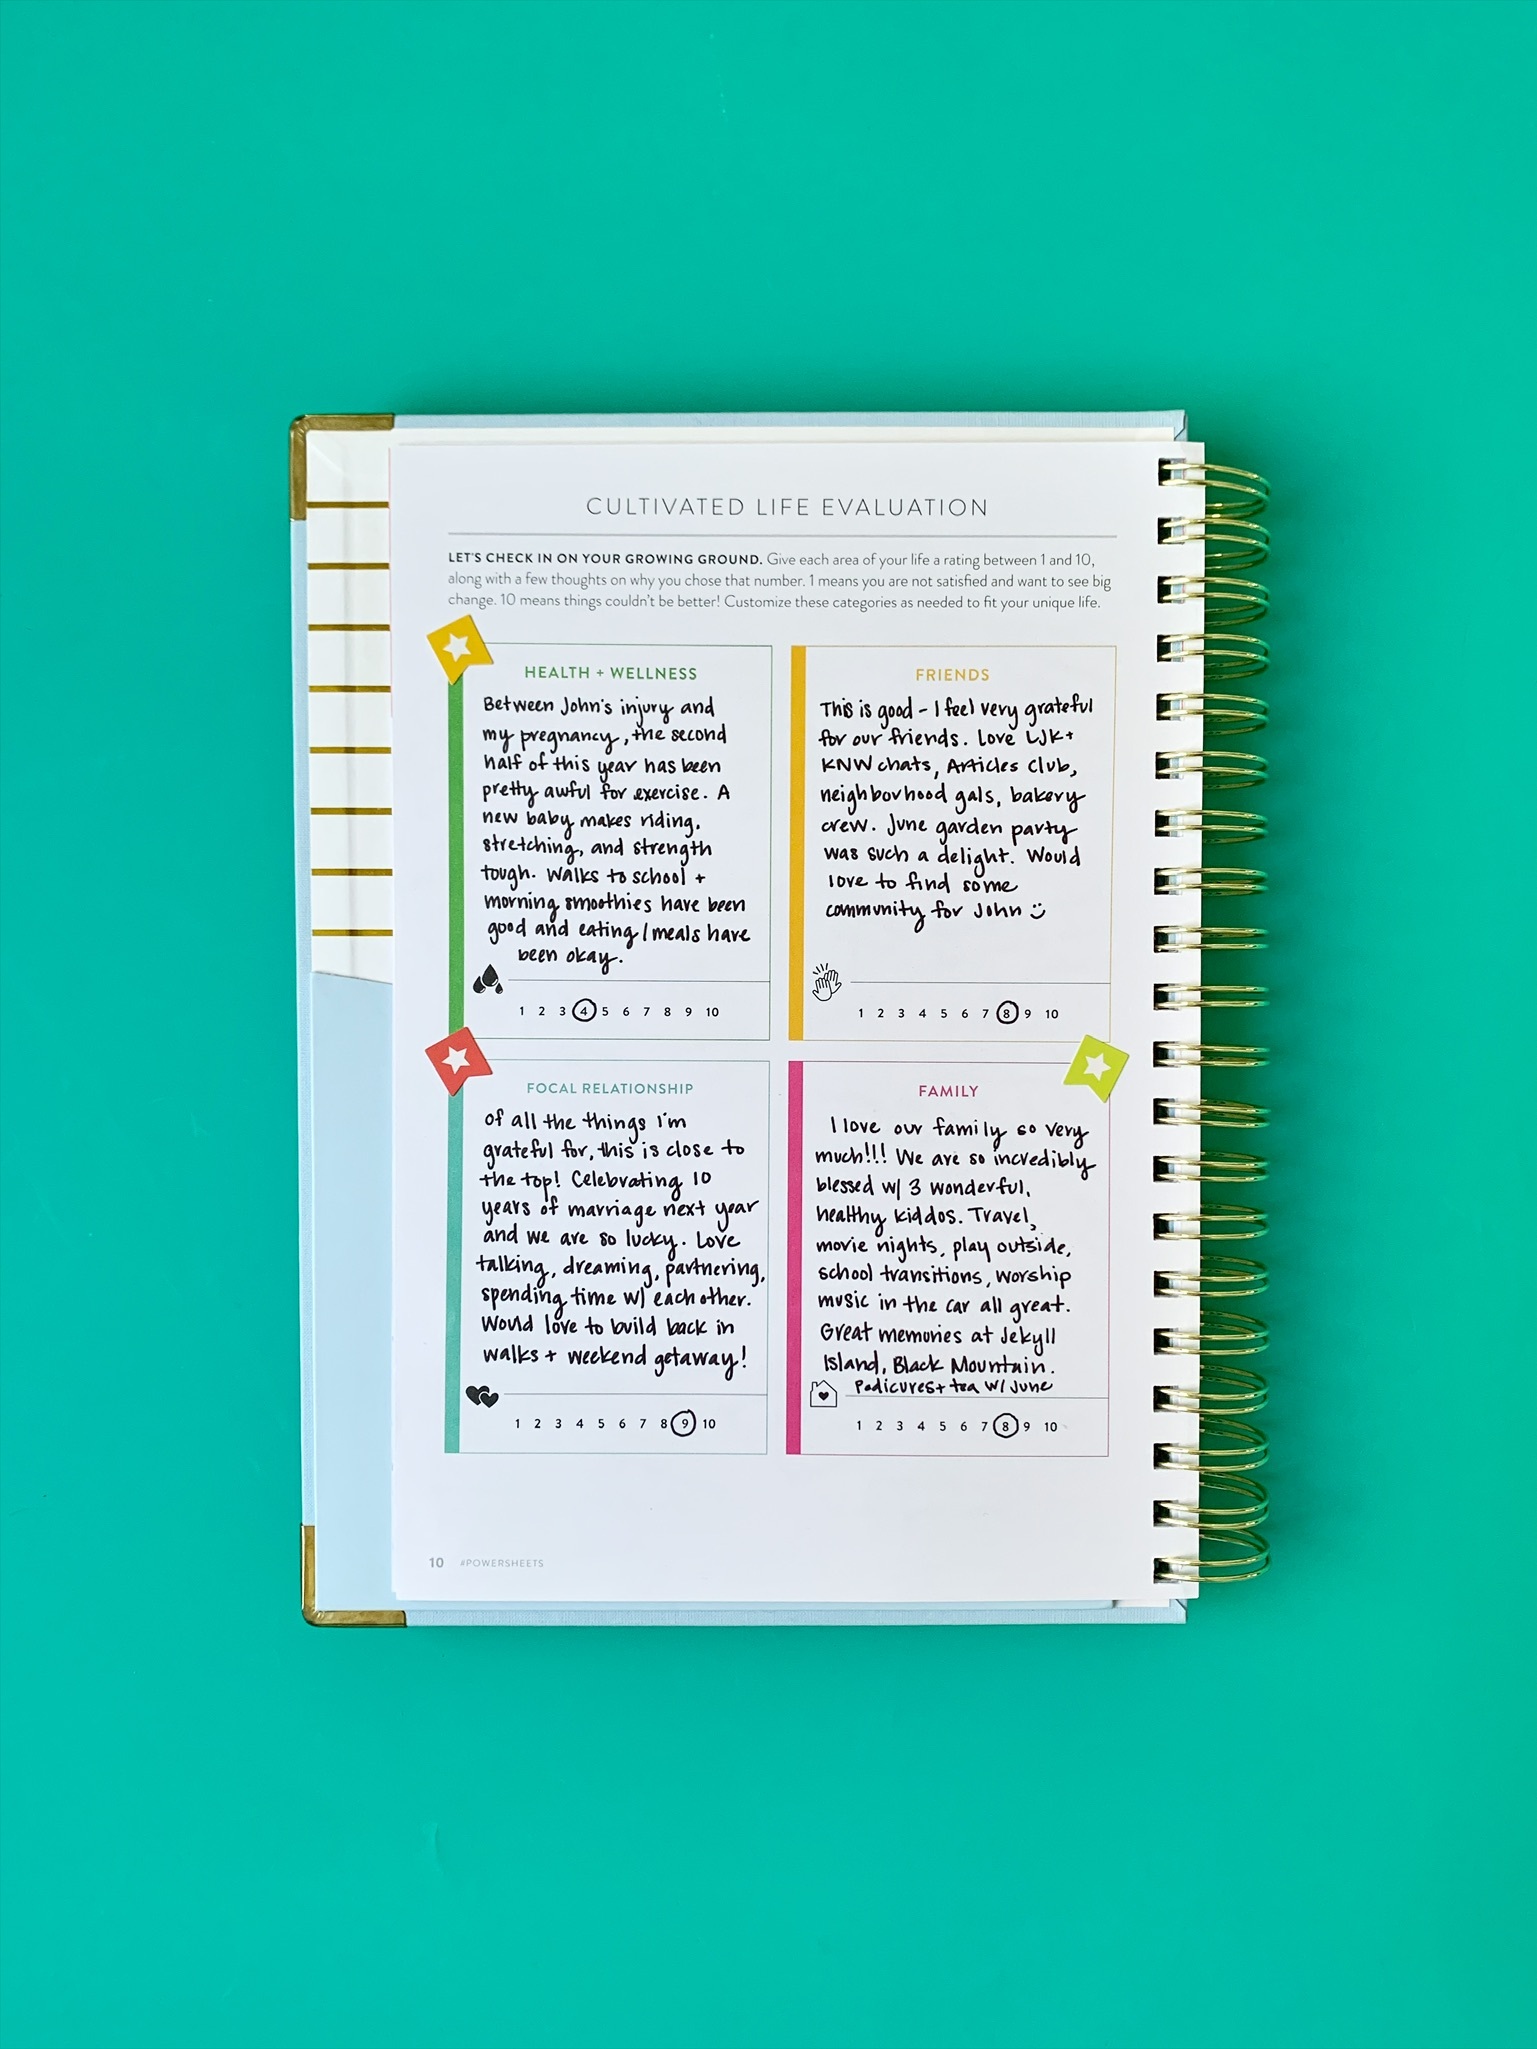 CULTIVATED LIFE EVALUATION
LET'S CHECK IN ON YOUR GROWING GROUND. Give each area of your life a rating between 1 and 10,
along with a few thoughts on why you chose that number. 1 means you are not satisfied and want to see big
change. 10 means things couldn't be better! Customize these categories as needed to fit your unique life.
HEALTH + WELLNESS
Between John's injury and
my pregnancy, the second
half of this year has been
pretty awful for exercise. A
new baby makes riding,
stretching, and strength
tough. Walks to school +
morning smoothies have been
good and eating/meals have
been okay.
1 2 3 4 5 6 7 8 9 10
FRIENDS
This is good - I feel very grateful
for our friends. Love LJK+
KNW chats, Articles Club,
neighborhood gals, bakery
crew. June garden party
was such a delight. Would
love to find some
community for John
1 2 3 4 5 6 7 8 9 10
FOCAL RELATIONSHIP
Of all the things I'm
grateful for, this is close to
the top! Celebrating 10
years of marriage next year
and we are so lucky. Love
talking, dreaming, partnering,
spending time w/ each other.
Would love to build back in
walks + weekend getaway!
1 2 3 4 5 6 7 8 9 10
FAMILY
I love our family so very
much!!! We are so incredibly
blessed w/ 3 wonderful,
healthy kiddos. Travel,
movie nights, play outside,
school transitions, worship
music in the car all great.
Great memories at Jekyll
Island, Black Mountain.
Pedicures+ tea w/ June
1 2 3 4 5 6 7 8 9 10
10 #POWERSHEETS